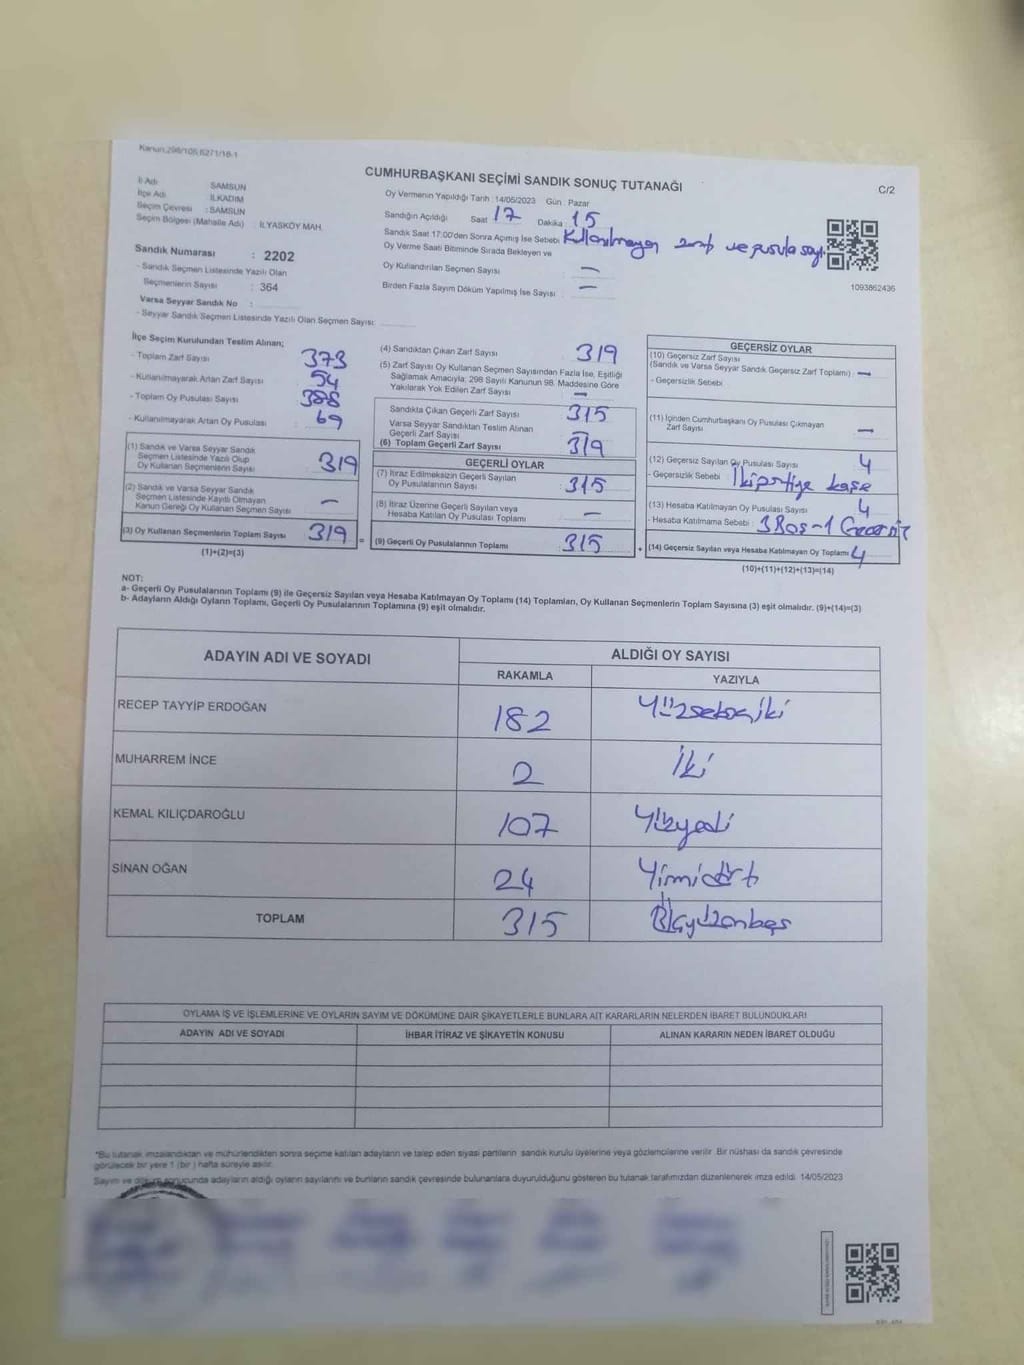 Kanun:298/105,6271/18-1
CUMHURBAŞKANI SEÇİMİ SANDIK SONUÇ TUTANAĞI
C/2
İl Adı SAMSUN
İlçe Adı İLKADIM
Seçim Çevresi : SAMSUN
Seçim Bölgesi (Mahalle Adı) : İLYASKÖY MAH.
Oy Vermenin Yapıldığı Tarih : 14/05/2023 Gün : Pazar
Sandığın Açıldığı Saat 17 Dakika : 15
Sandık Saat 17:00'den Sonra Açımış İse Sebebi Kullanılmayan zarf ve pusula sayı.
Oy Verme Saati Bitiminde Sırada Bekleyen ve
Oy Kullandırılan Seçmen Sayısı : —
Birden Fazla Sayım Döküm Yapılmış İse Sayısı : —
1093862436
Sandık Numarası : 2202
- Sandık Seçmen Listesinde Yazılı Olan
Seçmenlerin Sayısı : 364
Varsa Seyyar Sandık No :
- Seyyar Sandık Seçmen Listesinde Yazılı Olan Seçmen Sayısı:
İlçe Seçim Kurulundan Teslim Alınan;
- Toplam Zarf Sayısı 373
- Kullanılmayarak Artan Zarf Sayısı 54
- Toplam Oy Pusulası Sayısı 388
- Kullanılmayarak Artan Oy Pusulası 69
(1) Sandık ve Varsa Seyyar Sandık
Seçmen Listesinde Yazılı Olup
Oy Kullanan Seçmenlerin Sayısı 319
(2) Sandık ve Varsa Seyyar Sandık
Seçmen Listesinde Kayıtlı Olmayan
Kanun Gereği Oy Kullanan Seçmen Sayısı —
(3) Oy Kullanan Seçmenlerin Toplam Sayısı 319 =
(1)+(2)=(3)
(4) Sandıktan Çıkan Zarf Sayısı 319
(5) Zarf Sayısı Oy Kullanan Seçmen Sayısından Fazla İse, Eşitliği
Sağlamak Amacıyla, 298 Sayılı Kanunun 98. Maddesine Göre
Yakılarak Yok Edilen Zarf Sayısı —
Sandıkta Çıkan Geçerli Zarf Sayısı 315
Varsa Seyyar Sandıktan Teslim Alınan
Geçerli Zarf Sayısı —
(6) Toplam Geçerli Zarf Sayısı 319
GEÇERLİ OYLAR
(7) İtiraz Edilmeksizin Geçerli Sayılan
Oy Pusulalarının Sayısı : 315
(8) İtiraz Üzerine Geçerli Sayılan veya
Hesaba Katılan Oy Pusulası Toplamı : —
(9) Geçerli Oy Pusulalarının Toplamı : 315 +
GEÇERSİZ OYLAR
(10) Geçersiz Zarf Sayısı
(Sandık ve Varsa Seyyar Sandık Geçersiz Zarf Toplamı) : —
- Geçersizlik Sebebi
(11) İçinden Cumhurbaşkanı Oy Pusulası Çıkmayan
Zarf Sayısı —
(12) Geçersiz Sayılan Oy Pusulası Sayısı 4
- Geçersizlik Sebebi : İkipartiye kaşe
(13) Hesaba Katılmayan Oy Pusulası Sayısı 4
- Hesaba Katılmama Sebebi : 3 Boş-1 Geçersiz
(14) Geçersiz Sayılan veya Hesaba Katılmayan Oy Toplamı 4
(10)+(11)+(12)+(13)=(14)
NOT:
a- Geçerli Oy Pusulalarının Toplamı (9) ile Geçersiz Sayılan veya Hesaba Katılmayan Oy Toplamı (14) Toplamları, Oy Kullanan Seçmenlerin Toplam Sayısına (3) eşit olmalıdır. (9)+(14)=(3)
b- Adayların Aldığı Oyların Toplamı, Geçerli Oy Pusulalarının Toplamına (9) eşit olmalıdır.
ADAYIN ADI VE SOYADI ALDIĞI OY SAYISI
RAKAMLA YAZIYLA
RECEP TAYYİP ERDOĞAN 182 Yüzseksiki
MUHARREM İNCE 2 İki
KEMAL KILIÇDAROĞLU 107 Yüzyedi
SİNAN OĞAN 24 Yirmidört
TOPLAM 315 Üçyüzonbeş
OYLAMA İŞ VE İŞLEMLERİNE VE OYLARIN SAYIM VE DÖKÜMÜNE DAİR ŞİKAYETLERLE BUNLARA AİT KARARLARIN NELERDEN İBARET BULUNDUKLARI
ADAYIN ADI VE SOYADI İHBAR İTİRAZ VE ŞİKAYETİN KONUSU ALINAN KARARIN NEDEN İBARET OLDUĞU
*Bu tutanak imzalandıktan ve mühürlendikten sonra seçime katılan adayların ve talep eden siyasi partilerin sandık kurulu üyelerine veya gözlemcilerine verilir. Bir nüshası da sandık çevresinde
görülecek bir yere 1 (bir) hafta süreyle asılır.
Sayım ve döküm sonucunda adayların aldığı oyların sayılarını ve bunların sandık çevresinde bulunanlara duyurulduğunu gösteren bu tutanak tarafımızdan düzenlenerek imza edildi. 14/05/2023